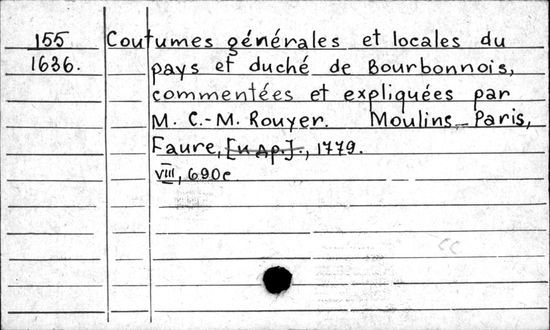 155 Coutumes générales et locales du
1636. pays et duché de Bourbonnois,
commentées et expliquées par
M. C.-M. Rouyer. Moulins-Paris,
Faure, [и др.]., 1779.
VIII, 690с
CC